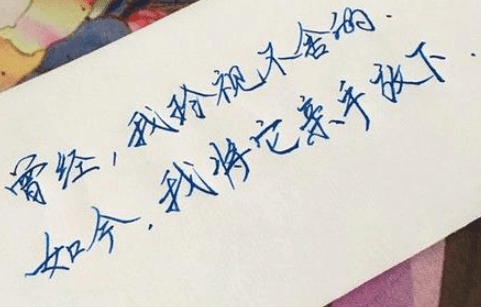 曾经，我珍视不舍的.
如今，我将它亲手放下.